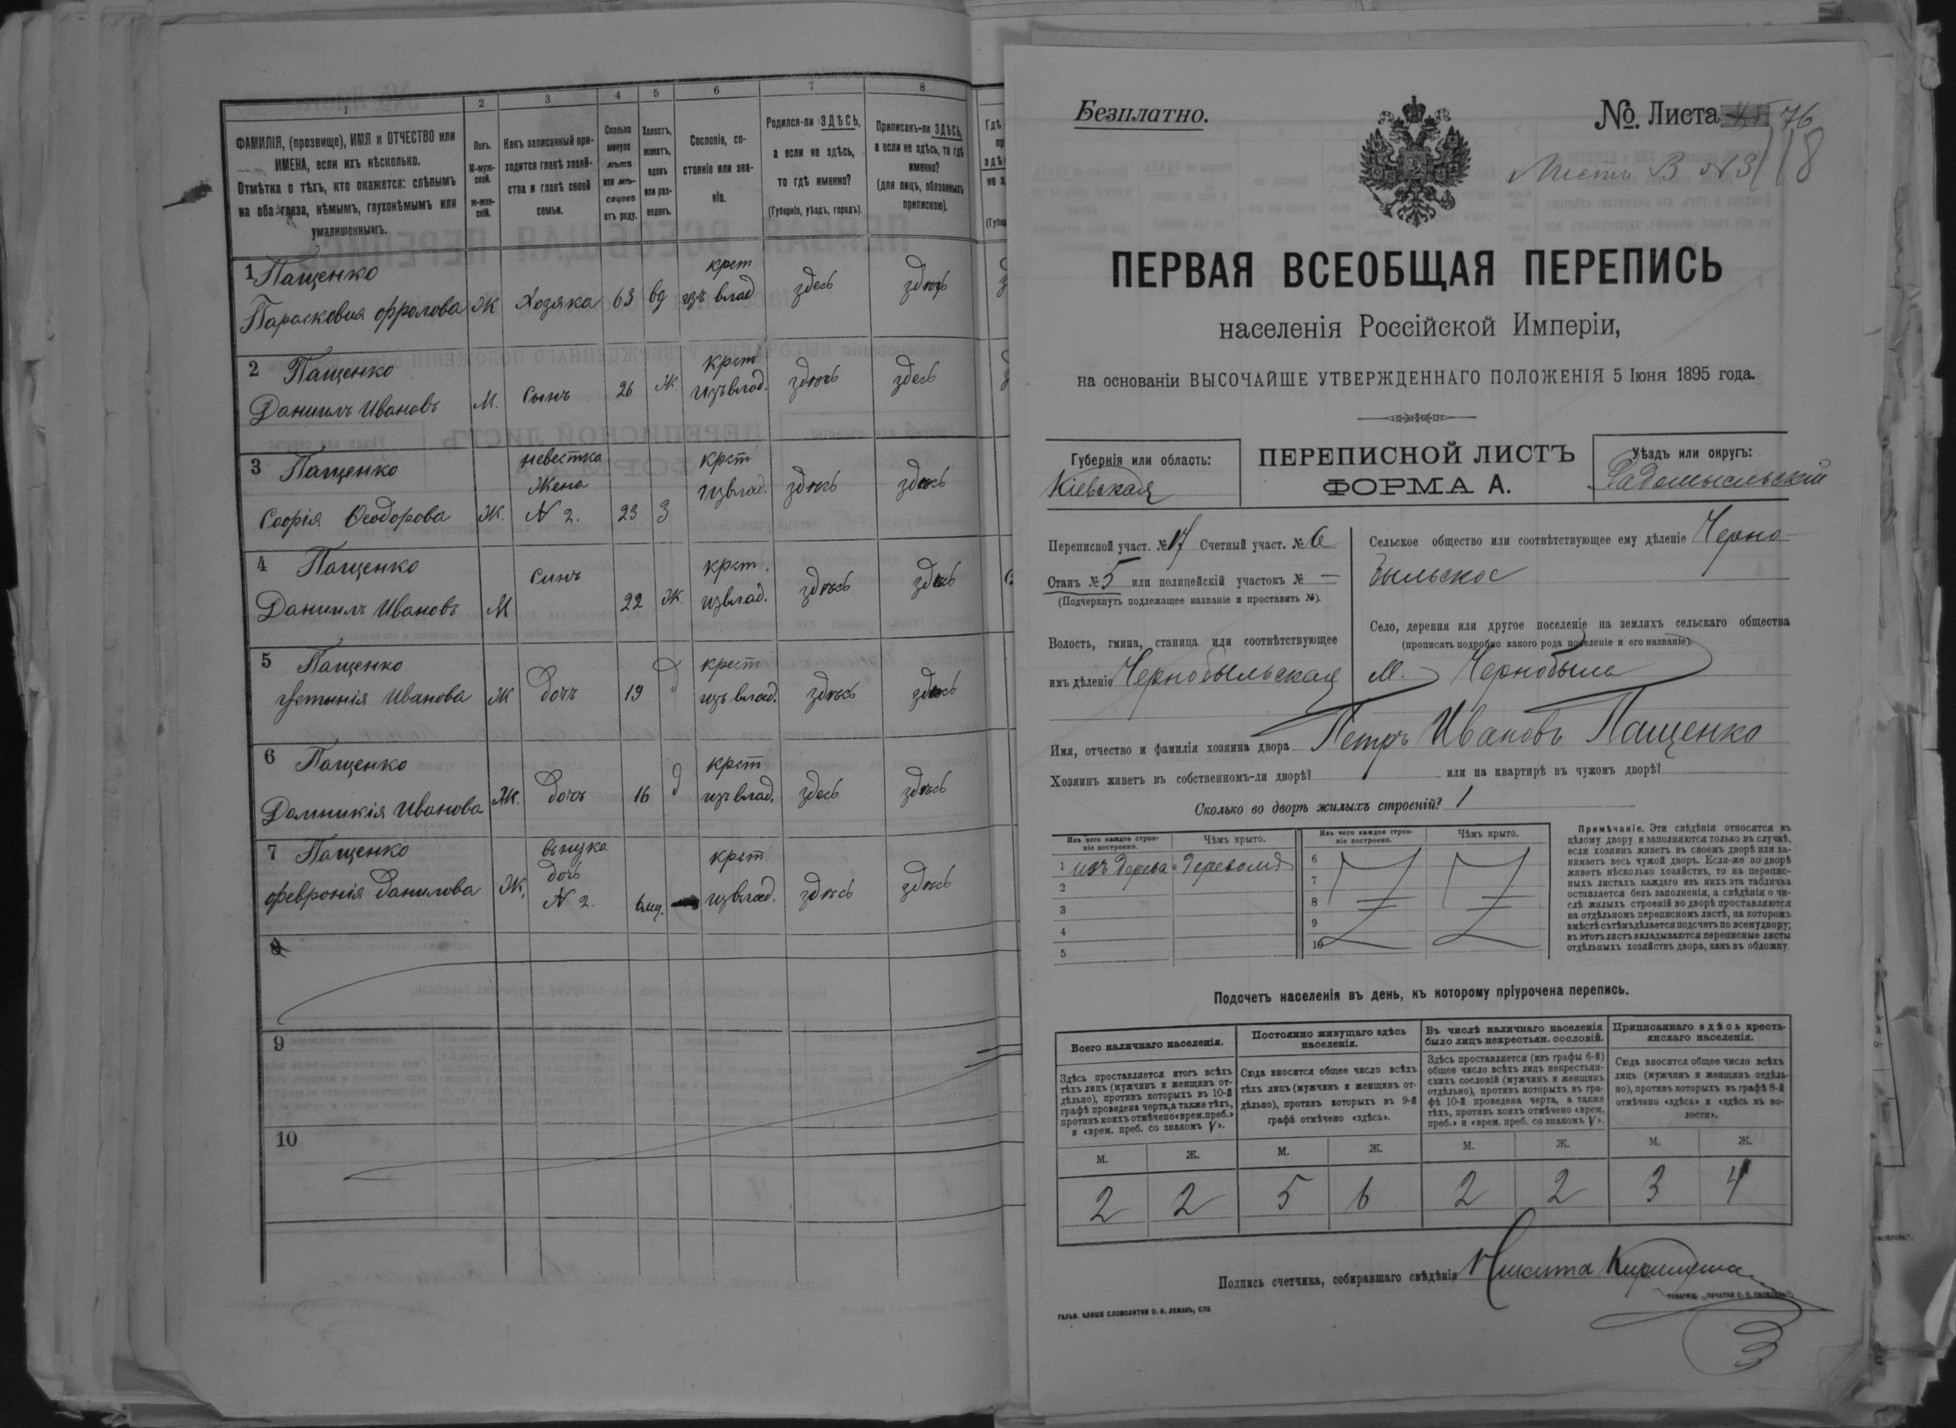 1
2
3
4
5
6
7
8
ФАМИЛІЯ, (прозвище), ИМЯ и ОТЧЕСТВО или
ИМЕНА, если ихъ нѣсколько.
Отмѣтка о тѣхъ, кто окажется: слѣпымъ
на оба глаза, нѣмымъ, глухонѣмымъ или
умалишеннымъ.
Полъ.
М-муж-
ской.
ж-жен-
скій.
Какъ записанный при-
ходится главѣ хозяй-
ства и главѣ своей
семьи.
Сколько
минуло
лѣтъ
или мѣ-
сяцевъ
отъ роду.
Холостъ,
женатъ,
вдовъ
или раз-
веденъ.
Сословіе, со-
стояніе или зва-
ніе.
Родился-ли ЗДѢСЬ,
а если не здѣсь,
то гдѣ именно?
(Губернія, уѣздъ, городъ).
Приписанъ-ли ЗДѢСЬ,
а если не здѣсь, то гдѣ
именно?
(для лицъ, обязанныхъ
припискою).
1 Пащенко
Парасковия Фролова Ж Хозяка 63 вд крст изъ влад здесь здѣсь
2 Пащенко
Даниилъ Ивановъ М. сынъ 26 ж крст изъ влад. здѣсь здесь
3 Пащенко
Софія Ѳеодорова Ж. невестка Жена N 2. 23 З крст изъ влад. здѣсь здѣсь
4 Пащенко
Даниилъ Ивановъ М сынъ 22 Ж. крст. из влад. здѣсь здѣсь
5 Пащенко
Устинія Иванова Ж дочь 19 д крест изъ влад. здѣсь здѣсь
6 Пащенко
Домникія Иванова Ж. дочь 16 д крст изъ влад. здесь здѣсь
7 Пащенко
Февронія Данилова Ж. внука дочь N 2. крст из влад. здѣсь здѣсь
8
9
10
Безплатно.
No. Листа 76
Листъ В N3
118
ПЕРВАЯ ВСЕОБЩАЯ ПЕРЕПИСЬ
населенія Россійской Имперіи,
на основаніи ВЫСОЧАЙШЕ УТВЕРЖДЕННАГО ПОЛОЖЕНІЯ 5 Іюня 1895 года.
Губернія или область:
Кіевская
ПЕРЕПИСНОЙ ЛИСТЪ
ФОРМА А.
Уѣздъ или округъ:
Радомысльскій
Переписной участ. № 17 Счетный участ. № 6
Станъ № 5 или полицейскій участокъ № —
(Подчеркнуть подлежащее названіе и проставить №).
Волость, гмина, станица или соотвѣтствующее
имъ дѣленіе Чернобыльская
Сельское общество или соотвѣтствующее ему дѣленіе Черно-
быльское
Село, деревня или другое поселеніе на земляхъ сельскаго общества
(прописать подробно какого рода поселеніе и его названіе).
М. Чернобыль
Имя, отчество и фамилія хозяина двора Петръ Ивановъ Пащенко
Хозяинъ живетъ въ собственномъ-ли дворѣ? или на квартирѣ въ чужомъ дворѣ?
Сколько во дворѣ жилыхъ строеній? 1
Изъ чего каждое строе-
ніе построено.
Чѣмъ крыто.
Изъ чего каждое строе-
ніе построено.
Чѣмъ крыто.
1 изъ дерева деревомъ
2
3
4
5
6
7
8
9
10
Примѣчаніе. Эти свѣдѣнія относятся къ
цѣлому двору и заполняются только въ случаѣ,
если хозяинъ живетъ въ своемъ дворѣ или за-
нимаетъ весь чужой дворъ. Если-же во дворѣ
живетъ нѣсколько хозяйствъ, то на перепис-
ныхъ листахъ каждаго изъ нихъ эта табличка
оставляется безъ заполненія, а свѣдѣнія о чи-
слѣ жилыхъ строеній во дворѣ проставляются
на отдѣльномъ переписномъ листѣ, на которомъ
вмѣстѣ съ тѣмъ дѣлается подсчетъ по всему двору;
въ этотъ листъ вкладываются переписные листы
отдѣльныхъ хозяйствъ двора, какъ въ обложку.
Подсчетъ населенія въ день, къ которому пріурочена перепись.
Всего наличнаго населенія.
Здѣсь проставляется итогъ всѣхъ
тѣхъ лицъ (мужчинъ и женщинъ от-
дѣльно), противъ которыхъ въ 10-й
графѣ проведена черта, а также тѣхъ,
противъ коихъ отмѣчено «врем. преб.»
и «врем. преб. со знакомъ V».
Постоянно живущаго здѣсь
населенія.
Сюда вносится общее число всѣхъ
тѣхъ лицъ (мужчинъ и женщинъ от-
дѣльно), противъ которыхъ въ 9-й
графѣ отмѣчено «здѣсь».
Въ числѣ наличнаго населенія
было лицъ некрестьян. сословій.
Здѣсь проставляется (изъ графы 6-й)
общее число всѣхъ лицъ некрестьян-
скихъ сословій (мужчинъ и женщинъ
отдѣльно), противъ которыхъ въ гра-
фѣ 10-й проведена черта, а также
тѣхъ, противъ коихъ отмѣчено «врем.
преб.» и «врем. преб. со знакомъ V».
Приписаннаго здѣсь кресть-
янскаго населенія.
Сюда вносится общее число всѣхъ
лицъ (мужчинъ и женщинъ отдѣль-
но), противъ которыхъ въ графѣ 8-й
отмѣчено «здѣсь» и «здѣсь въ во-
лости».
М. Ж. М. Ж. М. Ж. М. Ж.
2 2 5 6 2 2 3 4
Подпись счетчика, собиравшаго свѣдѣнія Никита
ГАЛЬВ. КЛИШЕ СЛОВОЛИТНИ О. И. ЛЕМАНЪ, СПБ
ТОВАРИЩ. „ПЕЧАТНЯ С. П. ЯКОВЛЕВА".